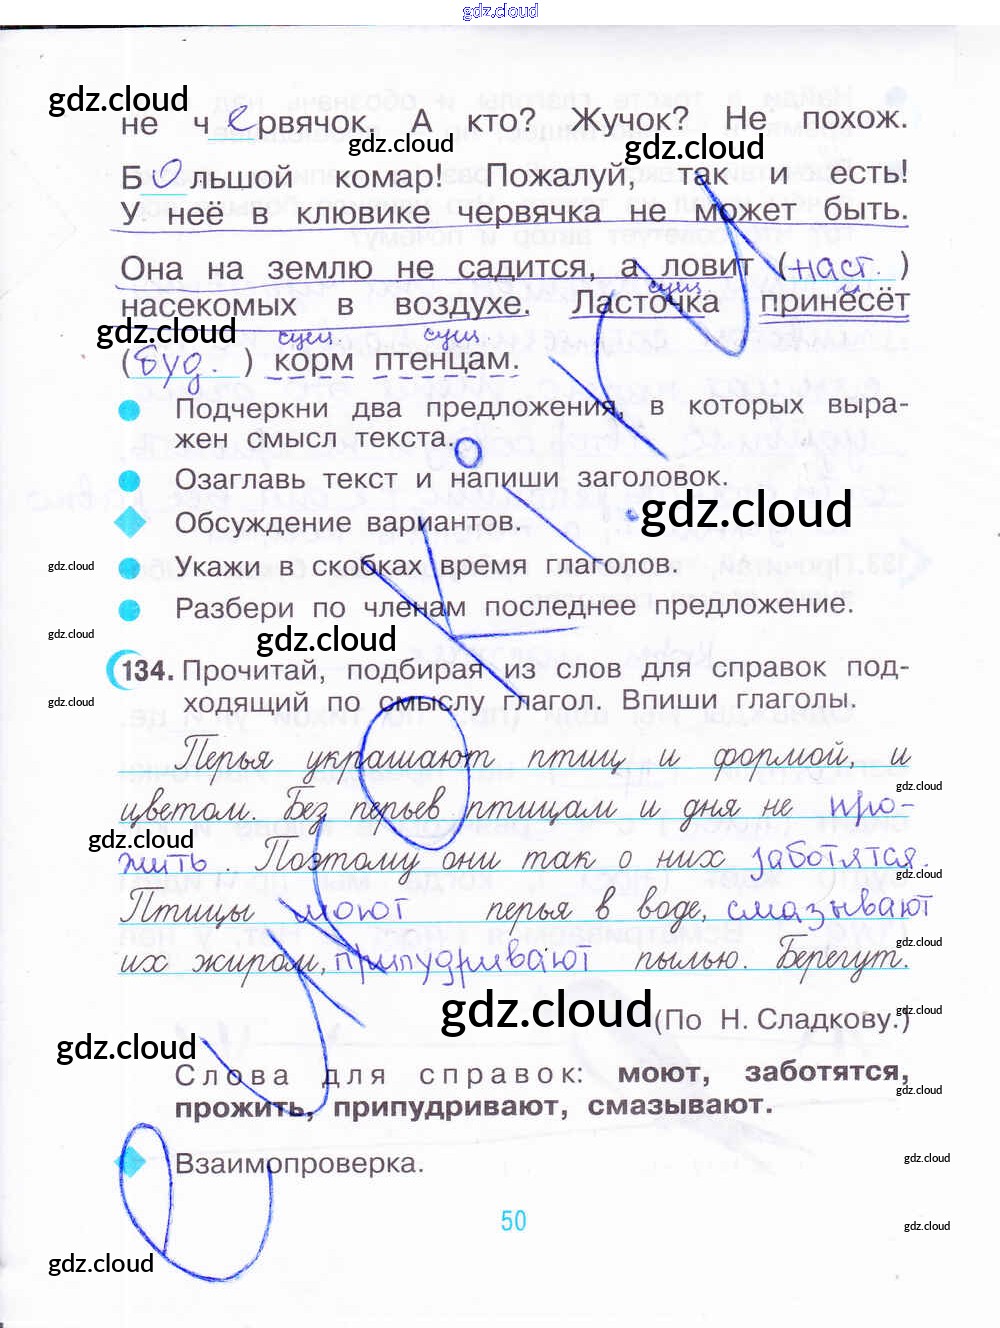 gdz.cloud
gdz.cloud
не червячок. А кто? Жучок? Не похож.
gdz.cloud
gdz.cloud
Большой комар! Пожалуй, так и есть!
У неё в клювике червячка не может быть.
Она на землю не садится, а ловит (наст.)
сущ
насекомых в воздухе. Ласточка принесёт
gdz.cloud
сущ сущ
(буд.) корм птенцам.
Подчеркни два предложения, в которых выра-
жен смысл текста.
Озаглавь текст и напиши заголовок.
gdz.cloud
Обсуждение вариантов.
gdz.cloud
Укажи в скобках время глаголов.
Разбери по членам последнее предложение.
gdz.cloud
gdz.cloud
134. Прочитай, подбирая из слов для справок под-
ходящий по смыслу глагол. Впиши глаголы.
gdz.cloud
Перья украшают птиц и формой, и
gdz.cloud
цветом. Без перьев птицам и дня не про-
gdz.cloud
жить. Поэтому они так о них заботятся.
gdz.cloud
Птицы моют перья в воде, смазывают
gdz.cloud
их жиром, припудривают пылью. Берегут.
gdz.cloud
gdz.cloud
(По Н. Сладкову.)
gdz.cloud
Слова для справок: моют, заботятся,
gdz.cloud
прожить, припудривают, смазывают.
Взаимопроверка.
gdz.cloud
50
gdz.cloud
gdz.cloud